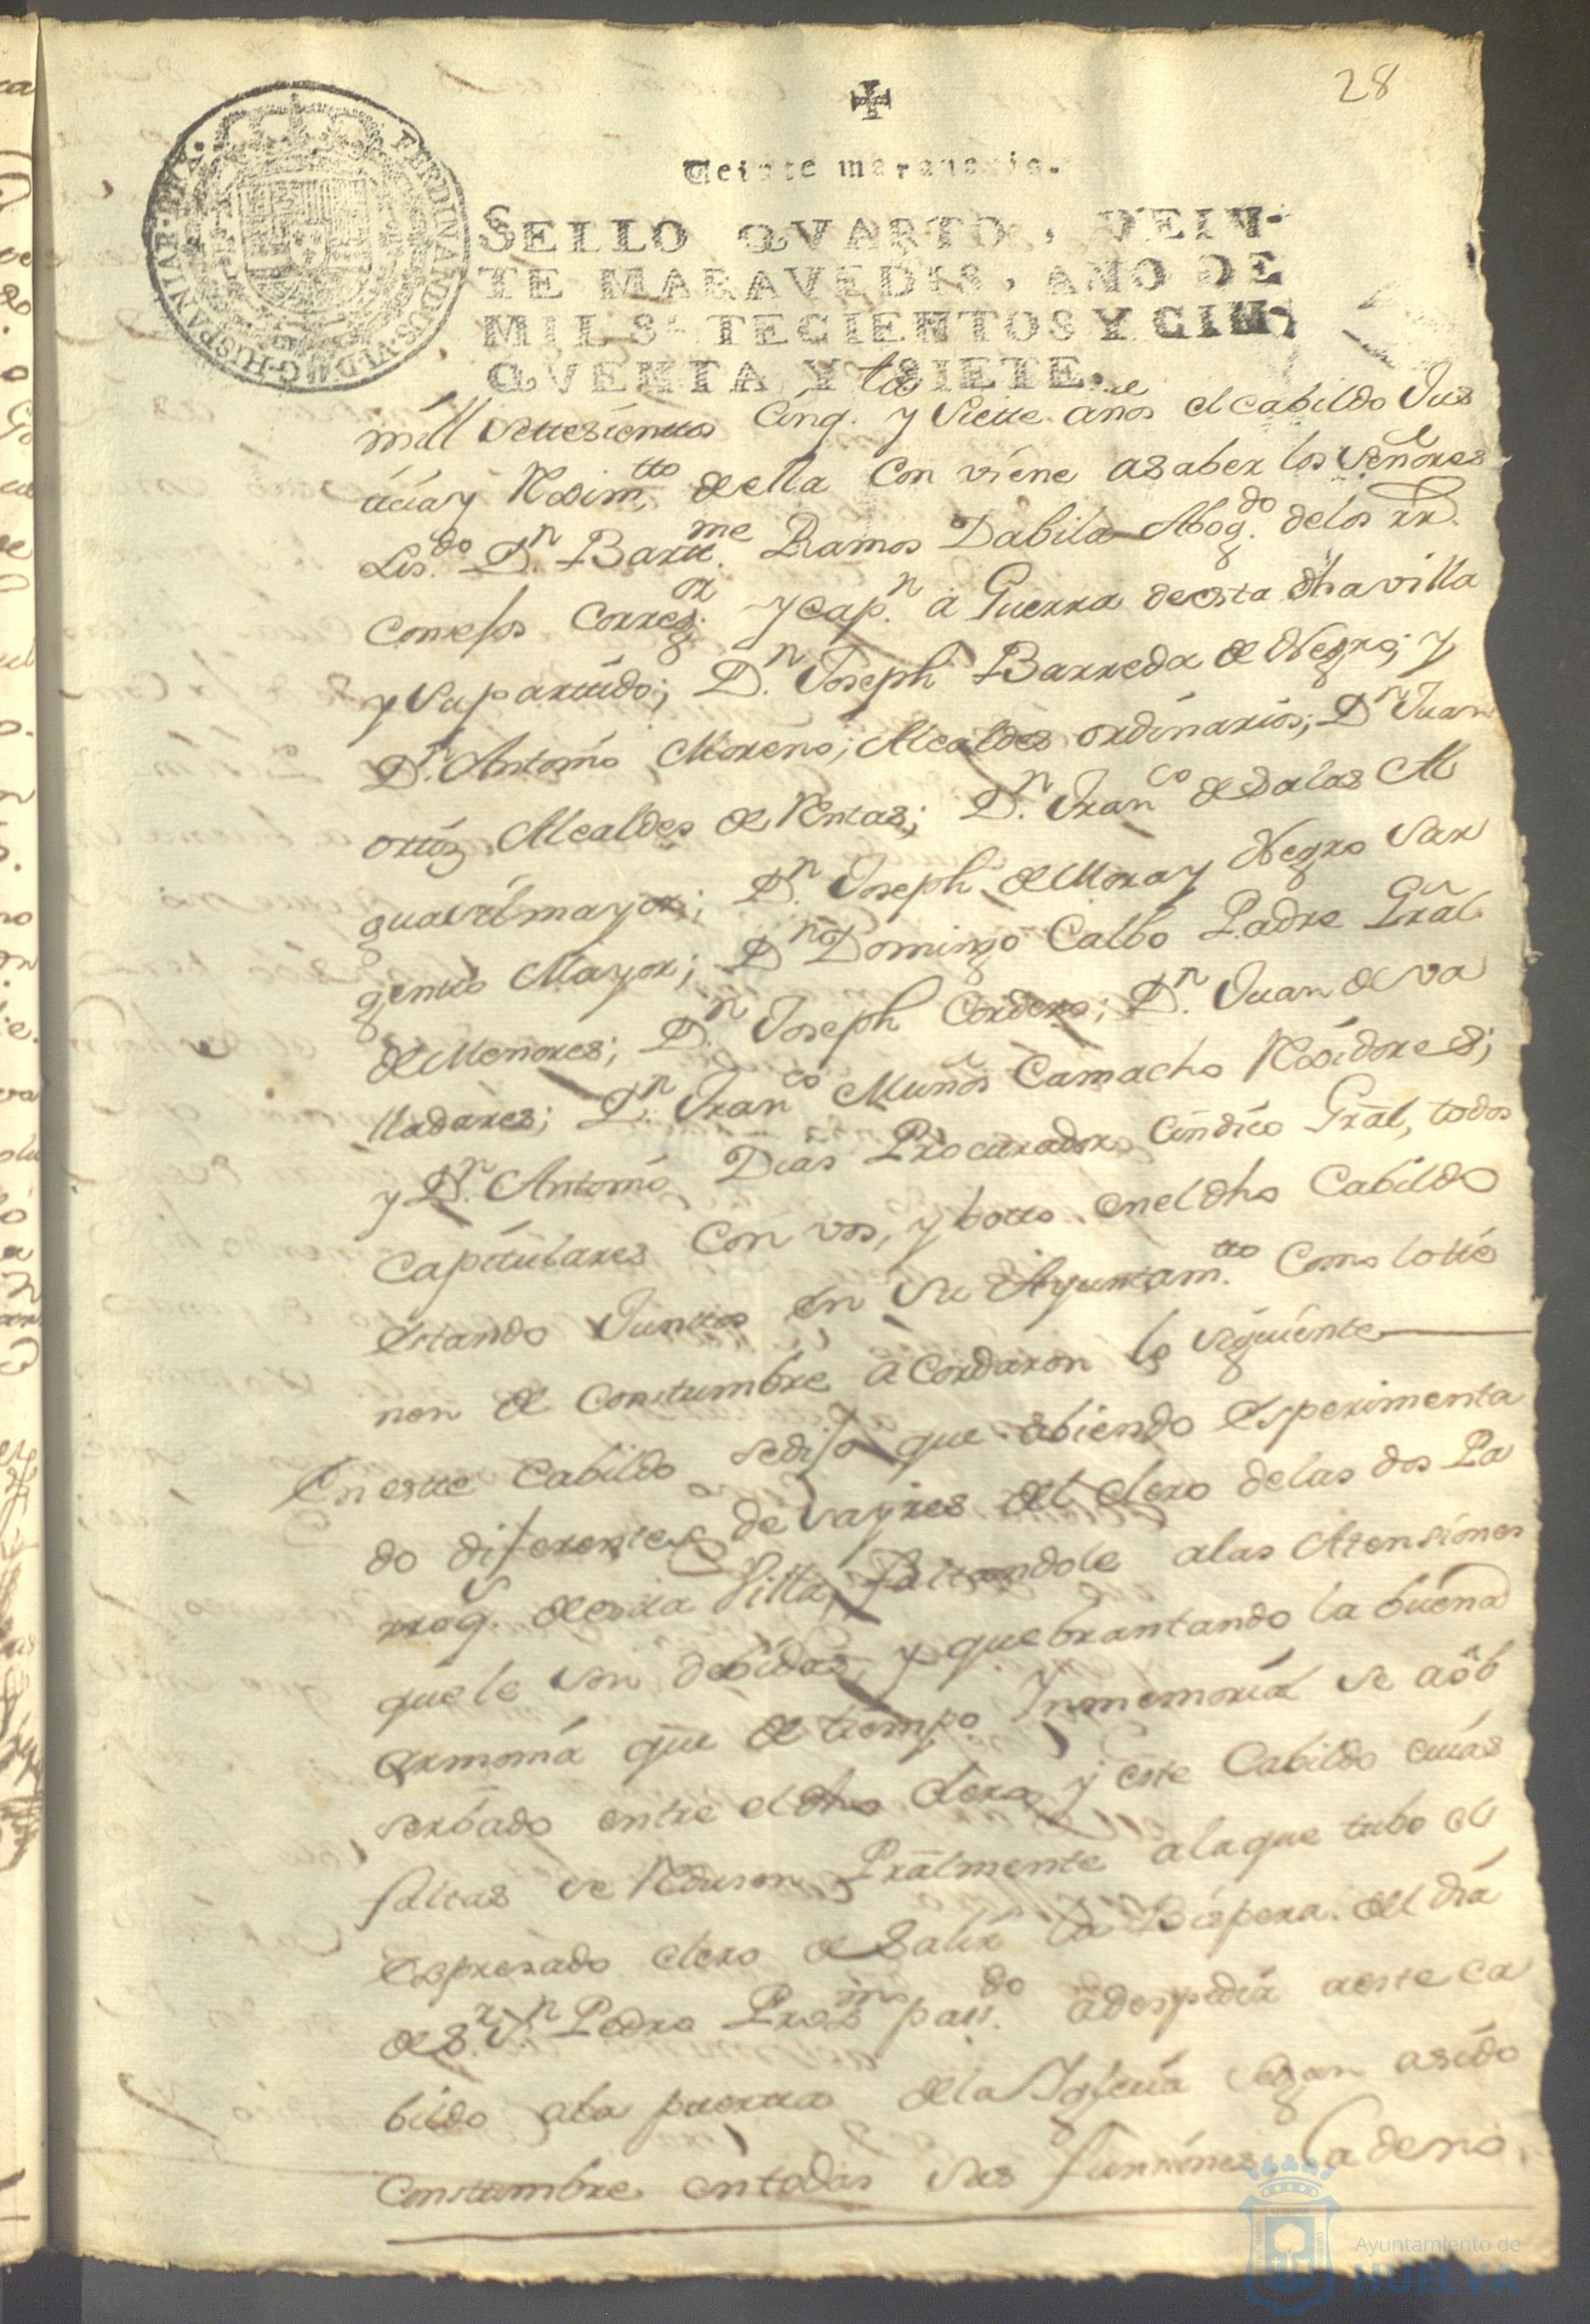 28
Veinte maravedis.
SELLO QVARTO, VEIN-
TE MARAVEDIS, AÑO DE
MIL SETECIENTOS Y CIN-
QVENTA Y SIETE.
FERDINANDUS·VI·D·G·HISPANIAR·REX·
mill settesienttos Cinq.ta y Siette años el cabildo Jus
ticia y Rexim.tto de ella Con viene asaber los señores
Lis.do D.n Bartt.me Ramos Dabila Abog.do delos RR.
Consejos Correg.or y cap.n a Guerra de esta dha villa
y Su parttido; D.n Joseph Barreda de Negro; y
D.n Antonio Moreno; Alcaldes ordinarios; D.n Juan
orttiz Alcaldes de Rentas; D.n Fran.co de Salas Al
guasil mayor; D.n Joseph de Mora y Negro Sar
gentto Mayor; D.n Domingo Calbo Padre Gral
de Menores; D.n Joseph Cordero; D.n Juan de va
lladares; D.n Fran.co Muños Camacho Rexidores;
y D.n Antonio Dias Procurador Cindico Gral, todos
Capitulares Con vos, y botto en el dho Cabildo
estando Junttos en Su Ayuntam.tto Como lo tie
nen de Constumbre acordaron lo siguiente
En estte Cabildo se dijo que abiendo esperimenta
do diferentes desayres del clero delas dos Pa
rroq.s de esta Villa, faltandole alas Atensiones
que le son debidas, y quebrantando la buena
armonia que de tiempo Inmemorial se a ob
serbado entre el dho clero y este Cabildo cuias
faltas se Reducen Pralmente ala que tubo el
expresado clero de Salir la Bispera del dia
de S.r S.n Pedro Prox.mo pas.do a despedir a este ca
bildo ala puertta de la Iglecia segun a sido
Constumbre en todas Sus funsiones,
Ayuntamiento de
HUELVA